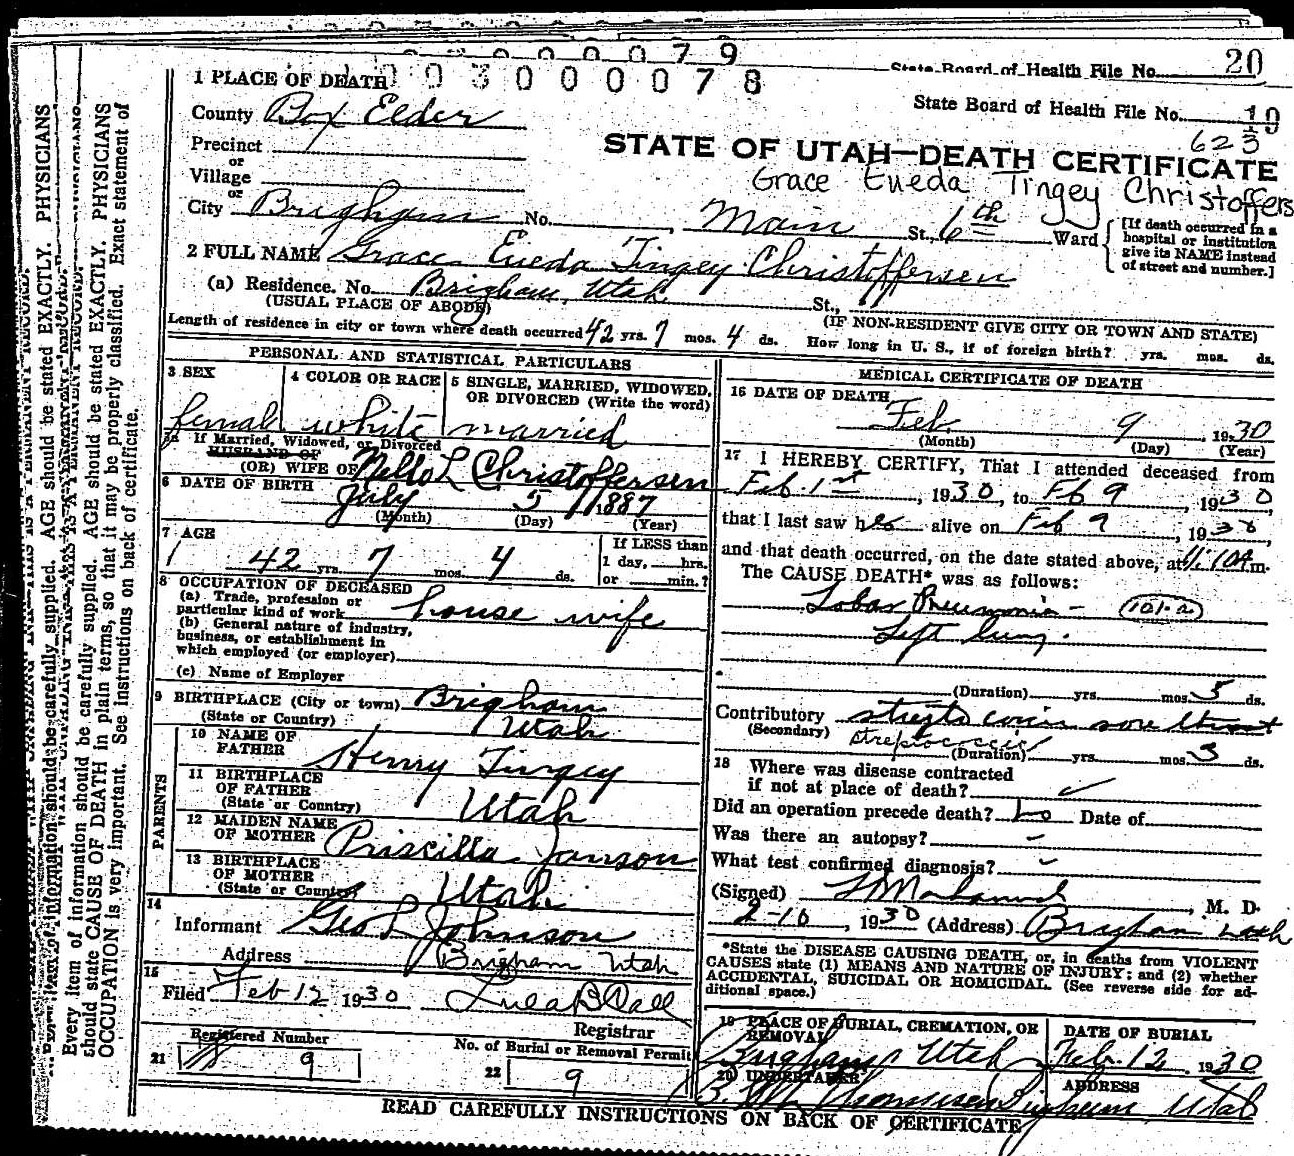 0 3 0 0 0 0 7 9
State Board of Health File No. 20
1 PLACE OF DEATH
0 0 3 0 0 0 0 7 8
State Board of Health File No. 19
County Box Elder
623
Precinct
or
Village
STATE OF UTAH—DEATH CERTIFICATE
Grace Eueda Tingey Christoffers
or
City Brigham No. Main St., 6th Ward
[If death occurred in a
hospital or institution
give its NAME instead
of street and number.]
2 FULL NAME Grace Eueda Tingey Christoffersen
(a) Residence. No. Brigham, Utah St.,
(USUAL PLACE OF ABODE) (IF NON-RESIDENT GIVE CITY OR TOWN AND STATE)
Length of residence in city or town where death occurred 42 yrs. 7 mos. 4 ds. How long in U. S., if of foreign birth? yrs. mos. ds.
PERSONAL AND STATISTICAL PARTICULARS
3 SEX
female
4 COLOR OR RACE
white
5 SINGLE, MARRIED, WIDOWED,
OR DIVORCED (Write the word)
married
5a If Married, Widowed, or Divorced
HUSBAND OF
(OR) WIFE OF Nello L Christoffersen
6 DATE OF BIRTH
July 5 1887
(Month) (Day) (Year)
7 AGE
42 yrs. 7 mos. 4 ds.
If LESS than
1 day, hrs.
or min.?
8 OCCUPATION OF DECEASED
(a) Trade, profession or
particular kind of work house wife
(b) General nature of industry,
business, or establishment in
which employed (or employer)
(c) Name of Employer
9 BIRTHPLACE (City or town) Brigham
(State or Country) Utah
PARENTS
10 NAME OF
FATHER Henry Tingey
11 BIRTHPLACE
OF FATHER
(State or Country) Utah
12 MAIDEN NAME
OF MOTHER Priscilla Janson
13 BIRTHPLACE
OF MOTHER
(State or Country) Utah
14
Informant Geo L Johnson
Address Brigham Utah
15
Filed Feb 12 1930 Lula B Call
Registrar
Registered Number
21 9
No. of Burial or Removal Permit
22 9
MEDICAL CERTIFICATE OF DEATH
16 DATE OF DEATH
Feb 9 1930
(Month) (Day) (Year)
17 I HEREBY CERTIFY, That I attended deceased from
Feb. 1st, 1930, to Feb 9 1930,
that I last saw her alive on Feb 9, 1930,
and that death occurred, on the date stated above, at 11:10A m.
The CAUSE DEATH* was as follows:
Lobar Pneumonia - 101-a
Left lung.
(Duration) yrs. mos. 5 ds.
Contributory strepto coccic sore throat
(Secondary) streptococcic
(Duration) yrs. mos. 3 ds.
18 Where was disease contracted
if not at place of death?
Did an operation precede death? no Date of
Was there an autopsy? -
What test confirmed diagnosis?
(Signed) M. D.
2-10, 1930 (Address) Brigham Utah
*State the DISEASE CAUSING DEATH, or, in deaths from VIOLENT
CAUSES state (1) MEANS AND NATURE OF INJURY; and (2) whether
ACCIDENTAL, SUICIDAL OR HOMICIDAL. (See reverse side for ad-
ditional space.)
19 PLACE OF BURIAL, CREMATION, OR
REMOVAL
Brigham Utah
DATE OF BURIAL
Feb. 12, 1930
20 UNDERTAKER
ADDRESS
Brigham Utah
READ CAREFULLY INSTRUCTIONS ON BACK OF CERTIFICATE
Every item of information should be carefully supplied. AGE should be stated EXACTLY. PHYSICIANS
should state CAUSE OF DEATH in plain terms, so that it may be properly classified. Exact statement of
OCCUPATION is very important. See instructions on back of certificate.